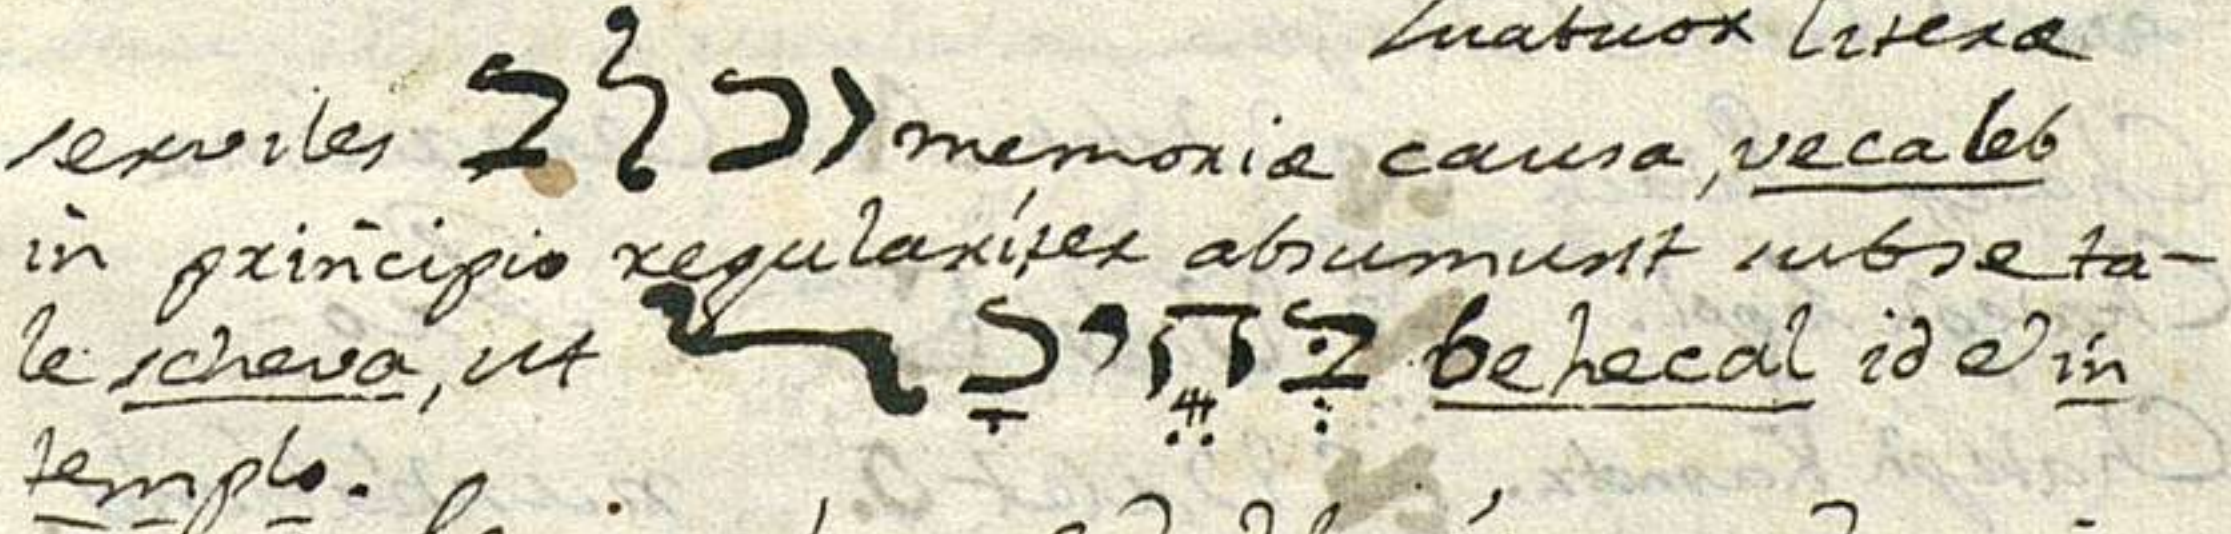 Quatuor literæ
serviles וכלב memoriæ causa, vecaleb
in principio regulariter absumunt subse ta-
le scheva, ut בְּהֵיכָל behecal id e in
templo.